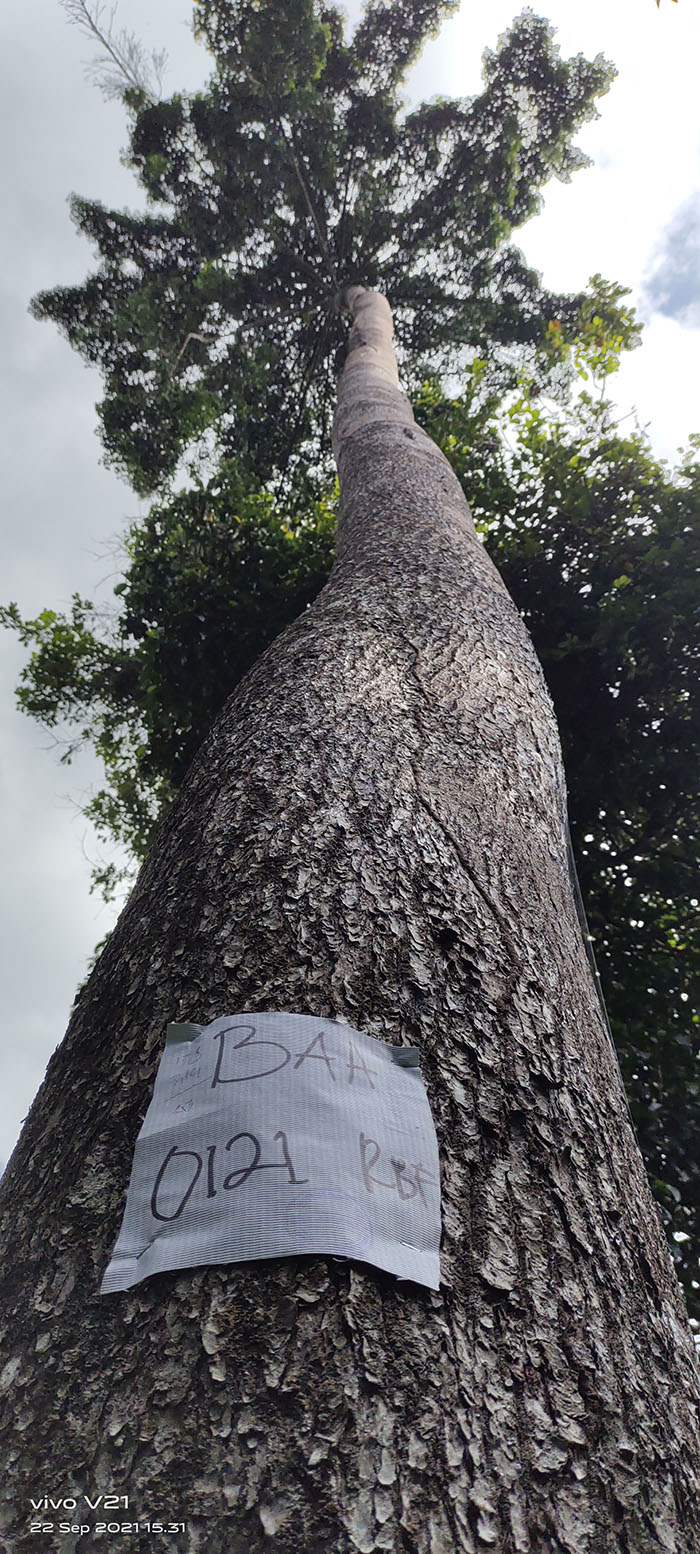 BAA
0121 RBF
vivo V21
22 Sep 2021 15.31